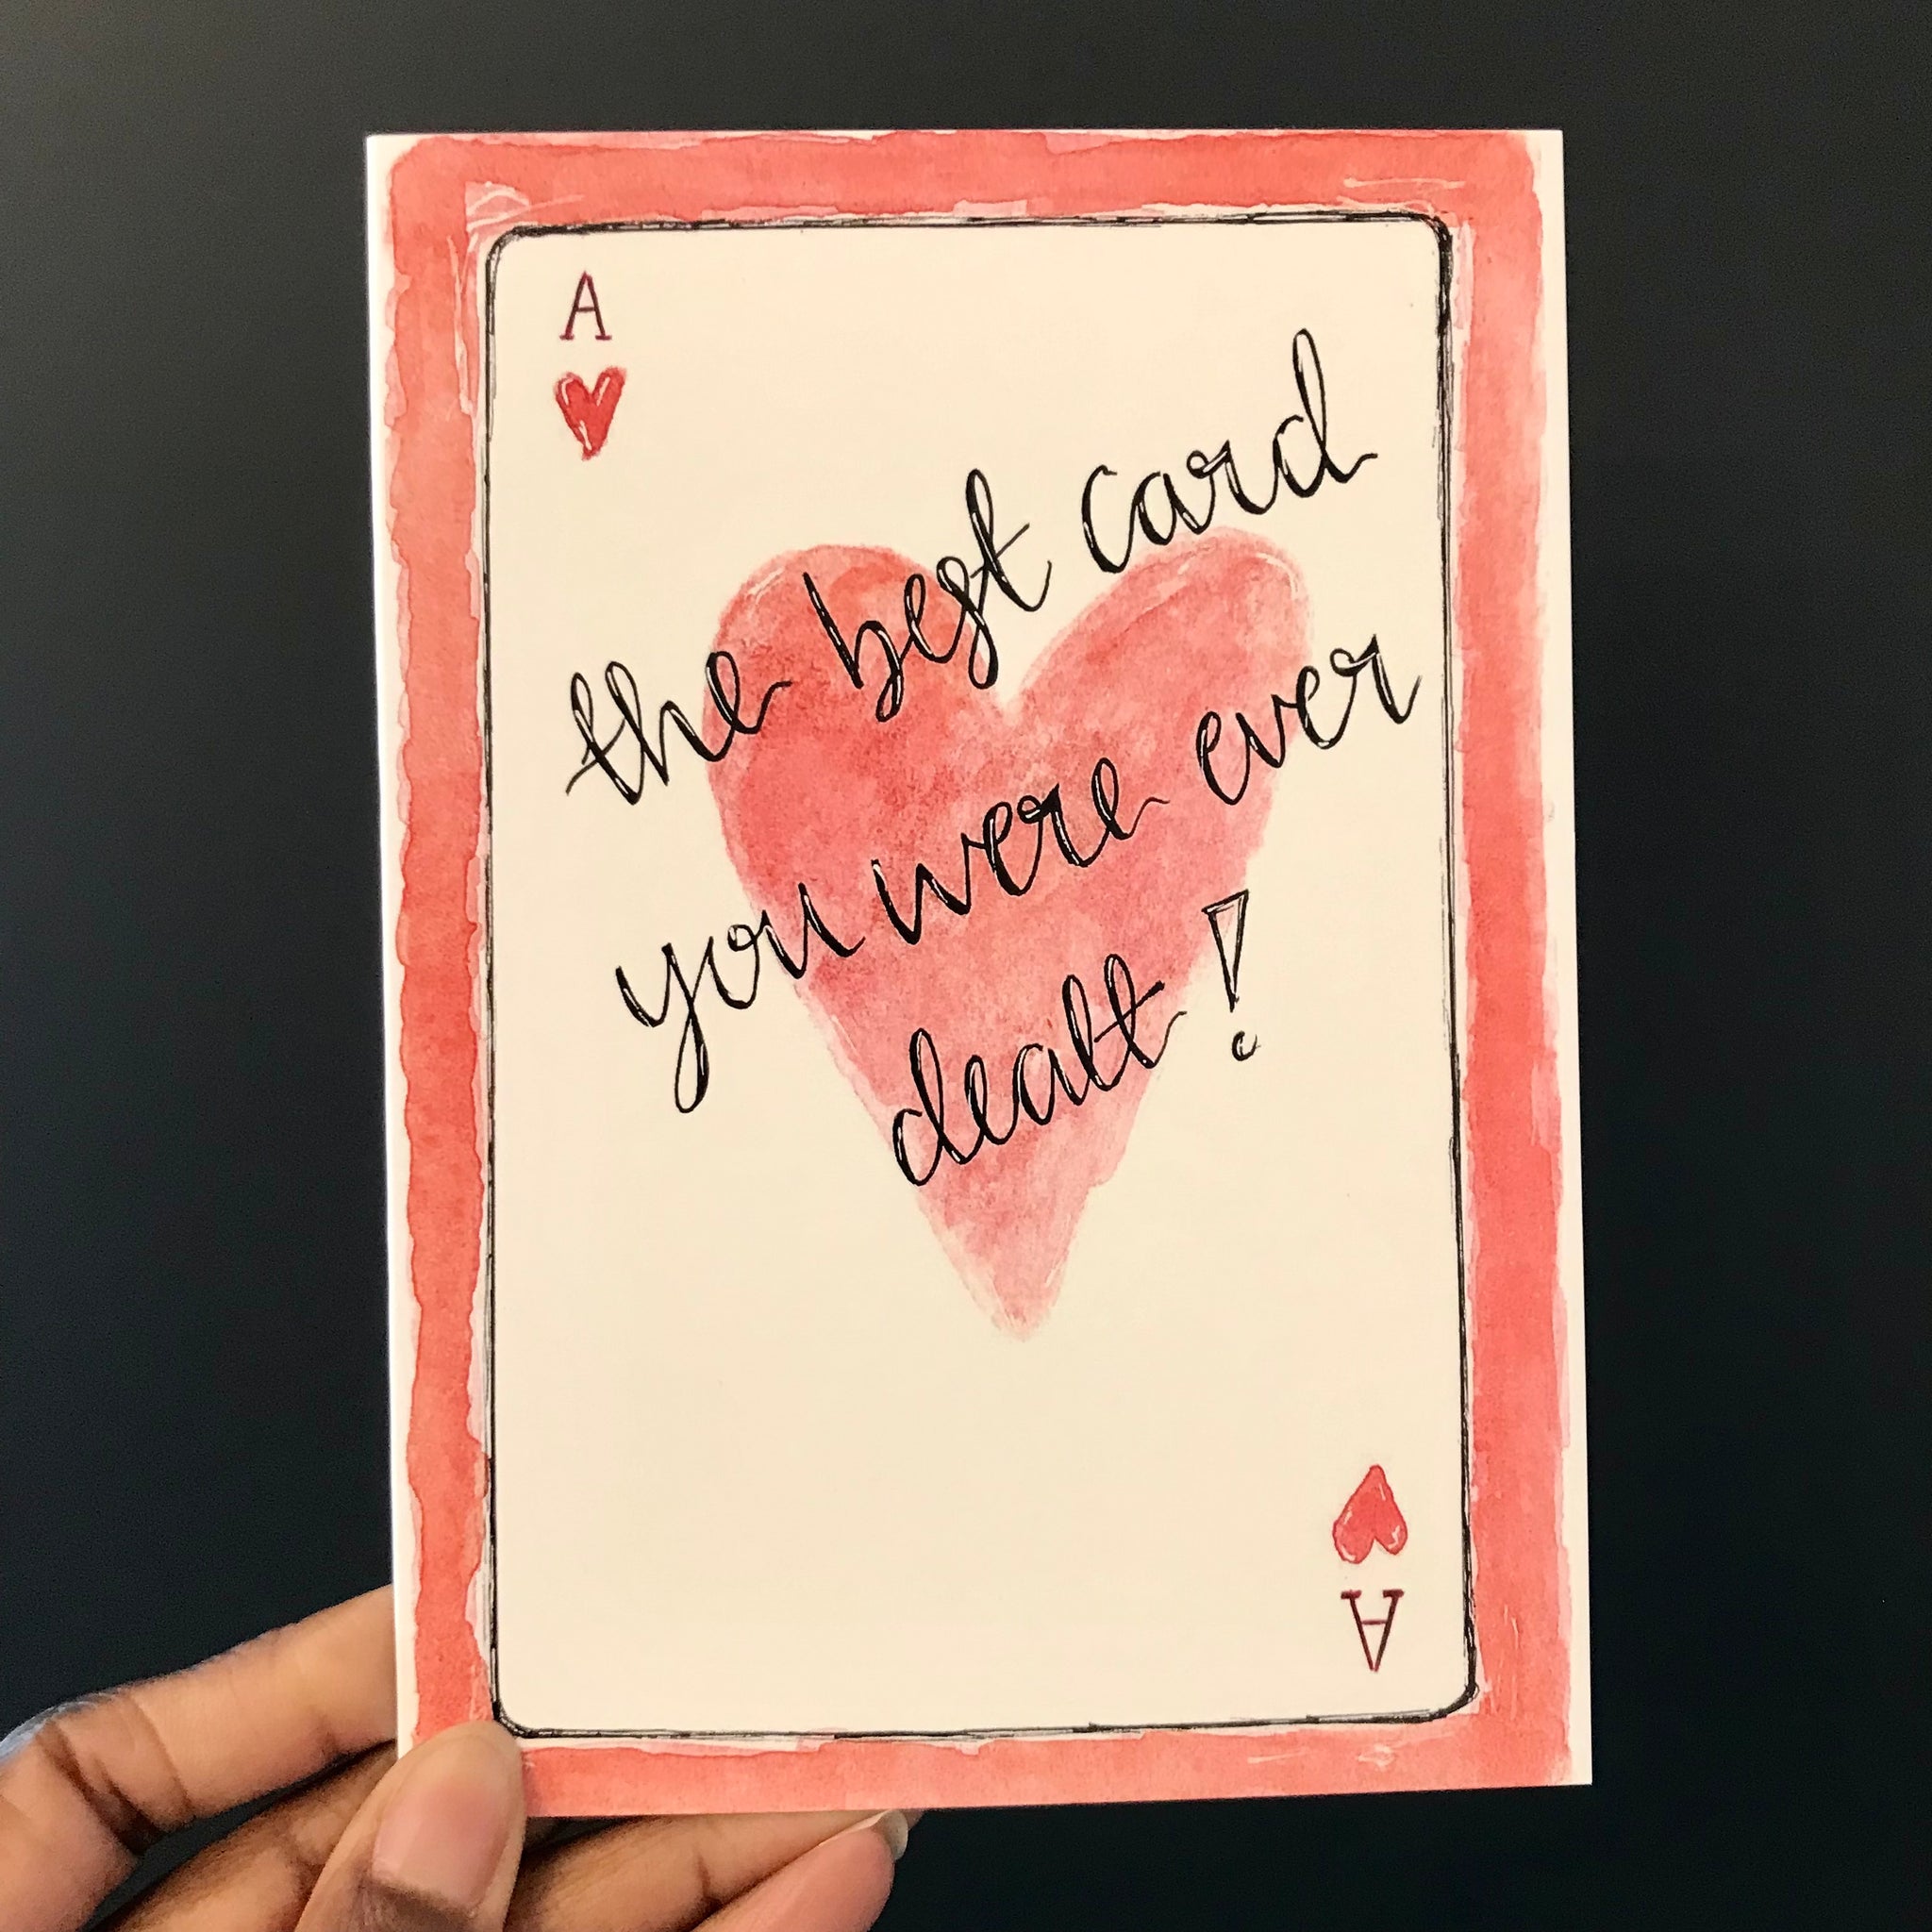 A
the best card
you were ever
dealt!
A